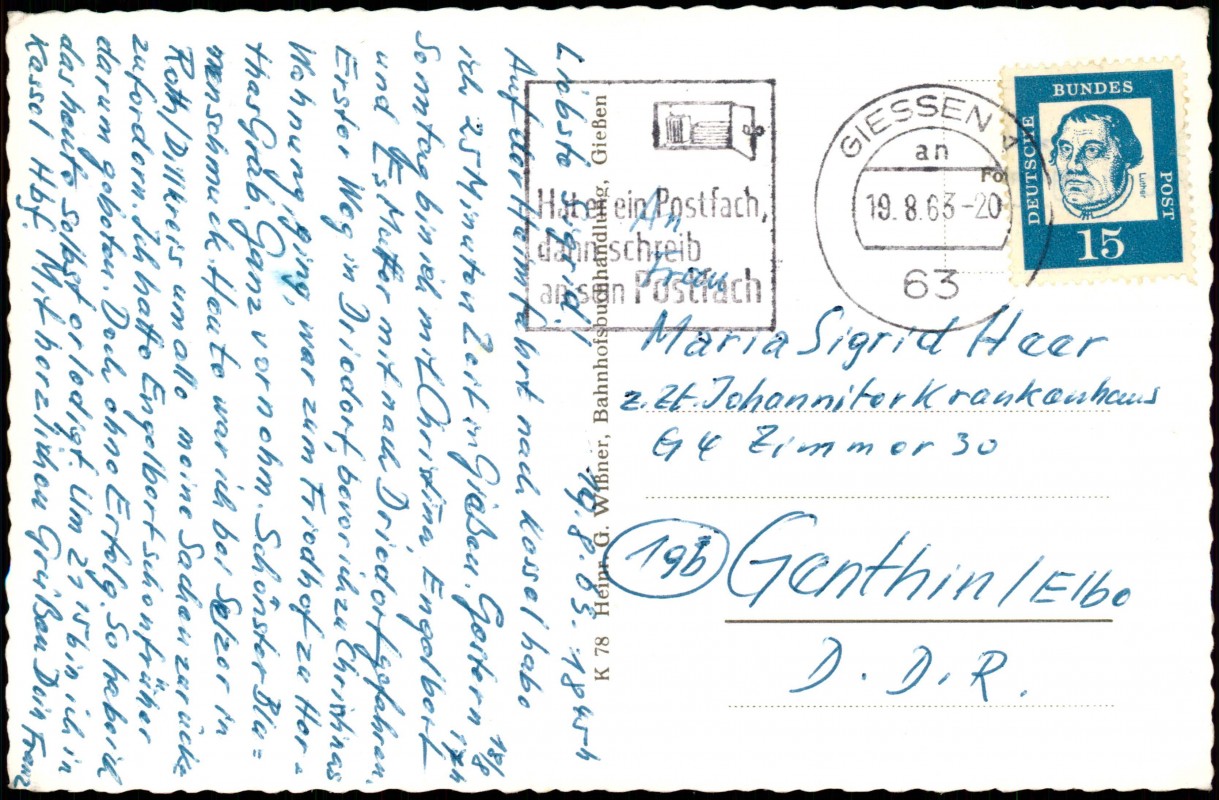 19.8.63. 18 45 h
Liebste Sigrid!
Auf der Heimfahrt nach Kassel habe
ich 25 Minuten Zeit in Gießen. Gestern 18/8
Sonntag bin ich mit Christina, Engelbert 17h
und Es Mutter mit nach Driedorf gefahren.
Erster Weg in Driedorf, bevor ich zu Christinas
Wohnung ging, war zum Friedhof zu Her-
thas Grab. Ganz vornehm. Schönster Blu=
menschmuck. Heute war ich bei Selzer in
Roth/Dillkreis um alle meine Sachen zurück
zufordern. Ich hatte Engelbert schon früher
darum gebeten. Doch ohne Erfolg. So habe ich
das heute selbst erledigt. Um 21 15 bin ich in
Kassel Hbf. Mit herzlichen Grüßen Dein Franz
K 78 Heinr. G. Wißner, Bahnhofsbuchhandlung, Gießen
Hat er ein Postfach,
dann schreib
an sein Postfach
GIESSEN
an
19.8.63-20
63
DEUTSCHE BUNDES POST
Luther
15
An
Frau
Maria Sigrid Heer
z.Zt. Johanniter Krankenhaus
G4 Zimmer 30
19b Genthin/Elbe
D.D.R.